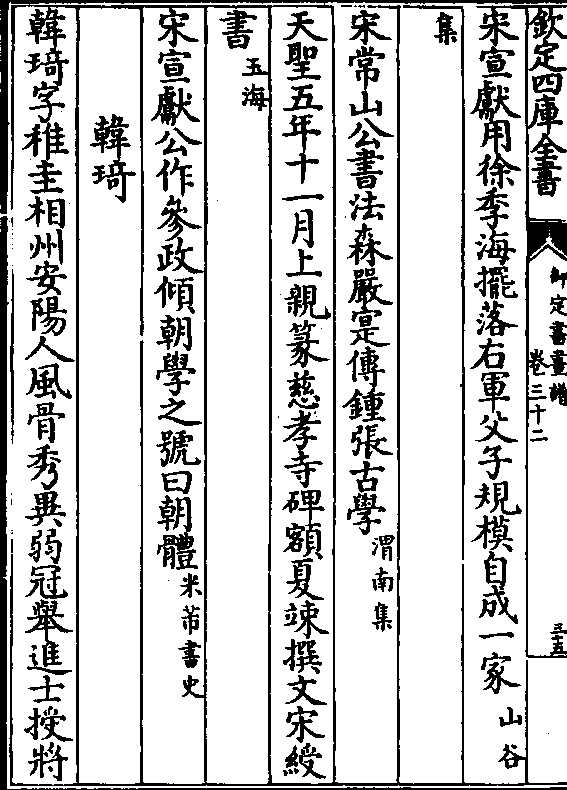 欽定四庫全書
御定書畫譜
卷三十二
三十五
宋宣獻用徐季海擺落右軍父子規模自成一家山谷
集
宋常山公書法森嚴寔傳鍾張古學渭南集
天聖五年十一月上親篆慈孝寺碑額夏竦撰文宋綬
書玉海
宋宣獻公作參政傾朝學之號曰朝體米芾書史
韓琦
韓琦字稚圭相州安陽人風骨秀異弱冠舉進士授將